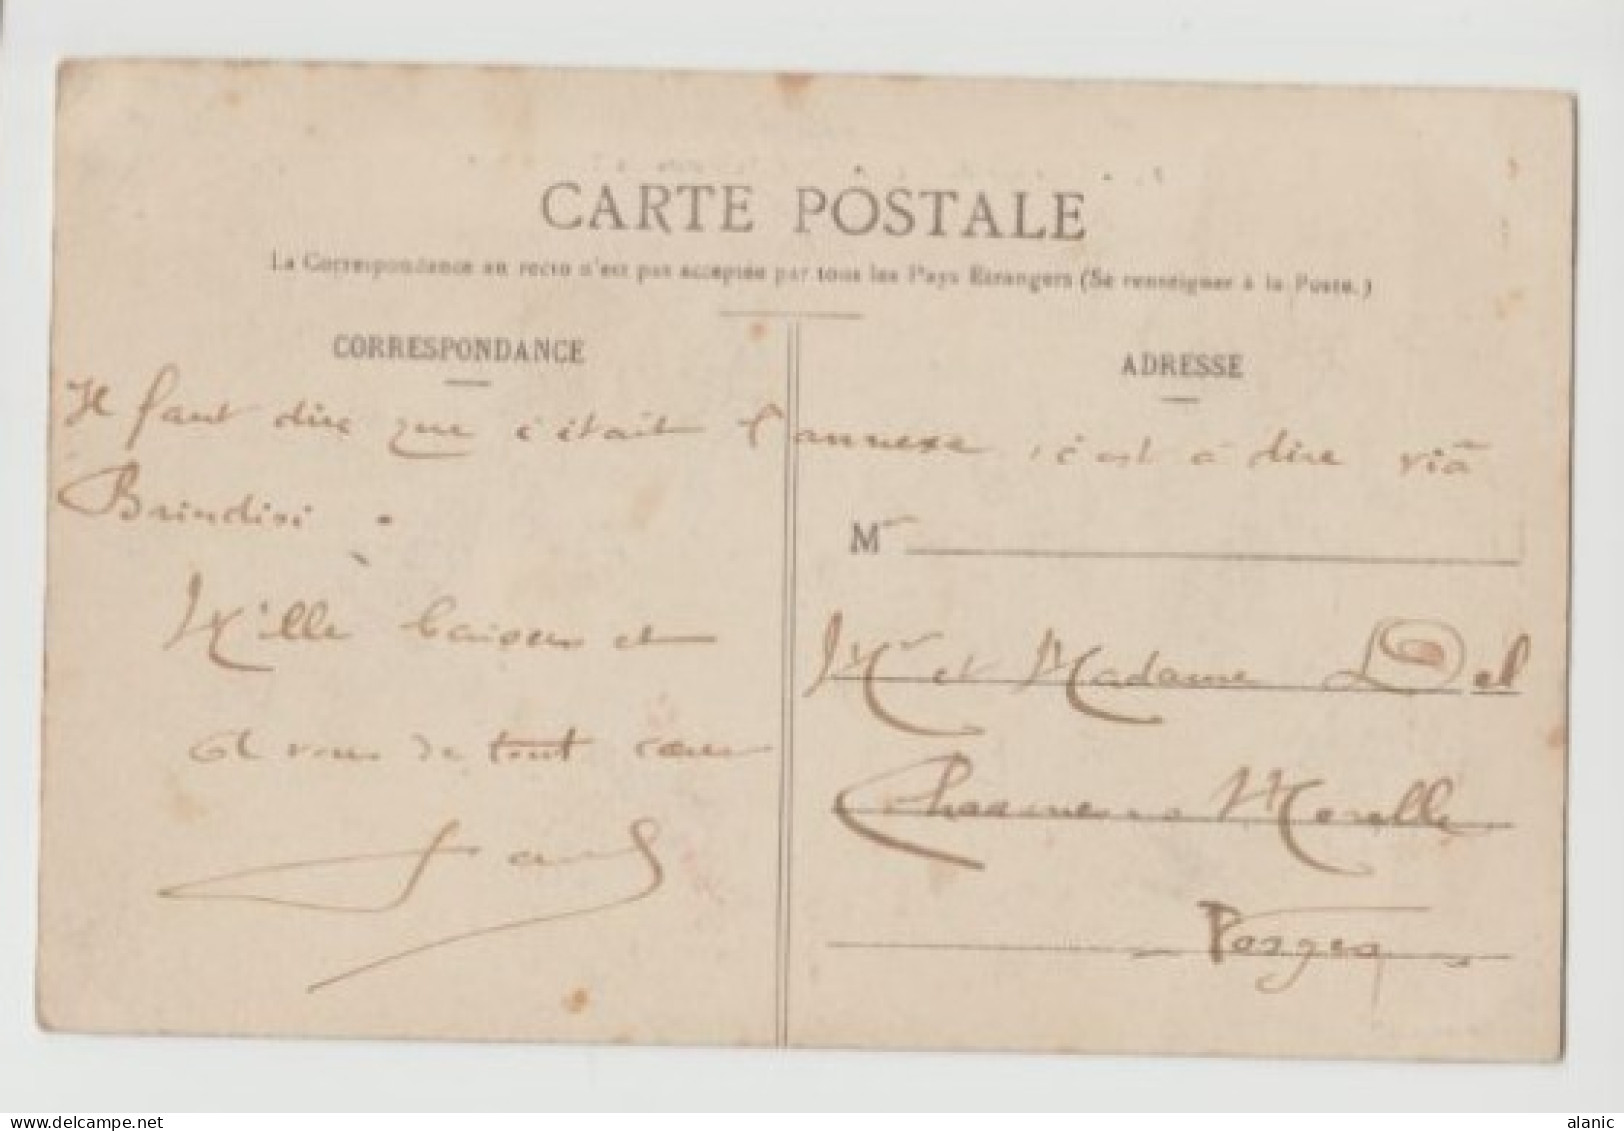 CARTE POSTALE
La Correspondance au recto n'est pas acceptée par tous les Pays Etrangers (Se renseigner à la Poste.)
CORRESPONDANCE
ADRESSE
Il faut dire que c'était l'annexe, c'est à dire viâ
Brindisi.
Mille baisers et
à vous de tout cœur
M
Mr et Madame Del
Charmes Moselle
Vosges
delcampe.net
alanic